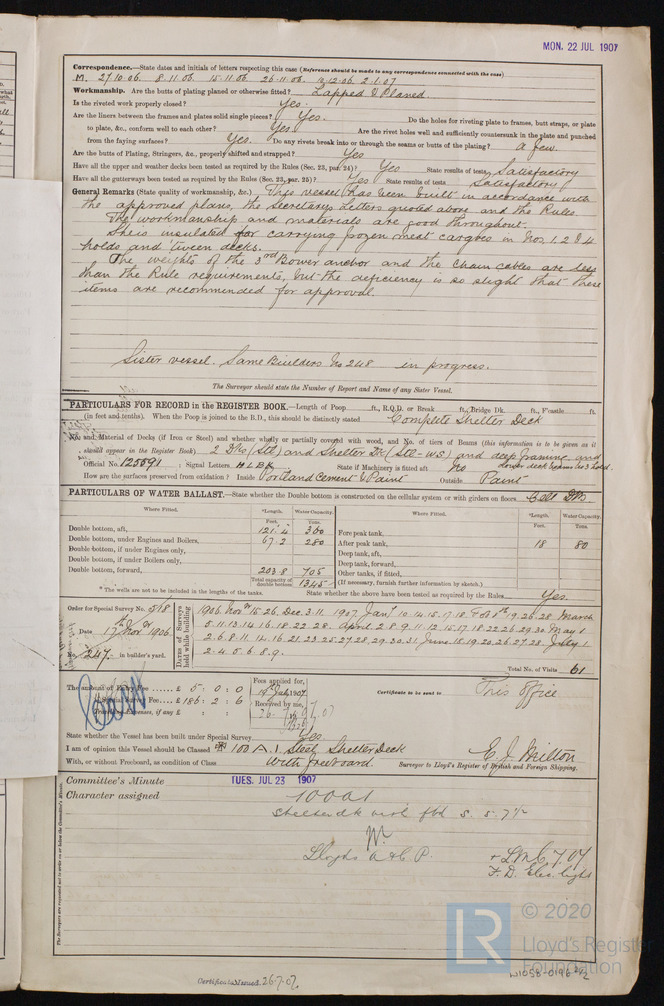 MON. 22 JUL 1907
Correspondence.—State dates and initials of letters respecting this case (Reference should be made to any correspondence connected with the case)
M. 27.10.06. 8.11.06. 15.11.06. 26.11.06. 12.06. 2.1.07
Workmanship. Are the butts of plating planed or otherwise fitted? Lapped & Planed.
Is the riveted work properly closed? Yes.
Are the liners between the frames and plates solid single pieces? Yes. Do the holes for riveting plate to frames, butt straps, or plate
to plate, &c., conform well to each other? Yes. Are the rivet holes well and sufficiently countersunk in the plate and punched
from the faying surfaces? Yes. Do any rivets break into or through the seams or butts of the plating? a few.
Are the butts of Plating, Stringers, &c., properly shifted and strapped? Yes
Have all the upper and weather decks been tested as required by the Rules (Sec. 23, par. 24)? Yes State results of tests, Satisfactory
Have all the gutterways been tested as required by the Rules (Sec. 23, par. 25)? Yes State results of tests Satisfactory
General Remarks (State quality of workmanship, &c.) This vessel has been built in accordance with
the approved plans, the Secretarys Letters quoted above and the Rules.
The workmanship and materials are good throughout.
She is insulated for carrying frozen meat cargoes in Nos. 1, 2 & 4
holds and 'tween decks.
The weights of the 3rd Bower anchor and the chain cables are less
than the Rule requirements, but the deficiency is so slight that these
items are recommended for approval.
Sister vessel. Same Builders No 248 in progress.
The Surveyor should state the Number of Report and Name of any Sister Vessel.
PARTICULARS FOR RECORD in the REGISTER BOOK.—Length of Poop ft., R.Q.D. or Break ft., Bridge Dk. ft., F'castle ft.
(in feet and tenths). When the Poop is joined to the B.D., this should be distinctly stated Complete Shelter Deck
No. and Material of Decks (if Iron or Steel) and whether wholly or partially covered with wood, and No. of tiers of Beams (this information is to be given as it
should appear in the Register Book) 2 Dks (Stl) and Shelter Dk (Stl-WS) and deep framing and
Official No. 125591 ; Signal Letters H L B K State if Machinery is fitted aft No lower deck beams No 3 hold.
How are the surfaces preserved from oxidation? Inside Portland Cement & Paint Outside Paint
PARTICULARS OF WATER BALLAST.—State whether the Double bottom is constructed on the cellular system or with girders on floors Cell DB
Where Fitted. *Length. Water Capacity. Where Fitted. *Length. Water Capacity.
Feet. Tons. Feet. Tons.
Double bottom, aft, 121.4 360 Fore peak tank,
Double bottom, under Engines and Boilers, 67.2 280 After peak tank, 18 80
Double bottom, if under Engines only, Deep tank, aft,
Double bottom, if under Boilers only, Deep tank, forward,
Double bottom, forward, 203.8 705 Other tanks, if fitted,
Total capacity of double bottom 1345 (If necessary, furnish further information by sketch.)
* The wells are not to be included in the lengths of the tanks. State whether the above have been tested as required by the Rules Yes.
Order for Special Survey No. 518
Date 17th Novr 1906
No. 247 in builder's yard.
Dates of Surveys held while building
1906. Novr 15. 26. Dec. 3. 11. 1907 Jany 10. 14. 15. 17. 18. Feb 8th 19. 26. 28 March
5. 11. 13. 14. 16. 18. 22. 28. April 2. 8. 9. 11. 12. 15. 17. 18. 22. 26. 29. 30. May 1
2. 6. 8. 11. 14. 16. 21. 23. 25. 27. 28. 29. 30. 31. June 18. 19. 20. 26. 27. 28. July 1
2. 4. 5. 6. 8. 9.
Total No. of Visits 61
The amount of Entry Fee £ 5 : 0 : 0
Special Survey Fee £ 186 : 2 : 6
Travelling Expenses, if any £ : :
Fees applied for,
Received by me,
Certificate to be sent to This office
State whether the Vessel has been built under Special Survey Yes.
I am of opinion this Vessel should be Classed ✠ 100 A. 1 Steel Shelter Deck
With, or without Freeboard, as condition of Class with freeboard.
E. J. Britton
Surveyor to Lloyd's Register of British and Foreign Shipping.
Committee's Minute TUES. JUL 23 1907
Character assigned 100A1
Shelter dk with fbd s. 5-7½
Lloyds A & C. P. + LMC 7.07
F.D. Elec. light
The Surveyors are requested not to write on or below the Committee's Minute.
Certificate Issued 26.7.07
© 2020
LR
Lloyd's Register
Foundation
W1058-0196 2/2